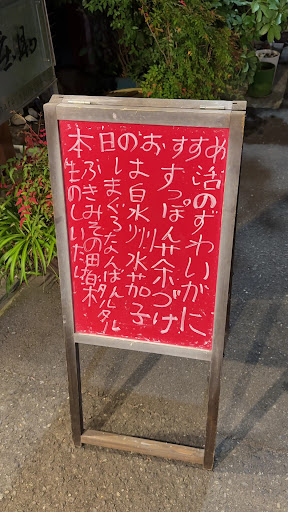 本日のおすすめ
活のずわいがに
すっぽん茶づけ
は泉州水茄子
しまぐろなんばんタルタル
ふきみその田楽
生のしいたけ